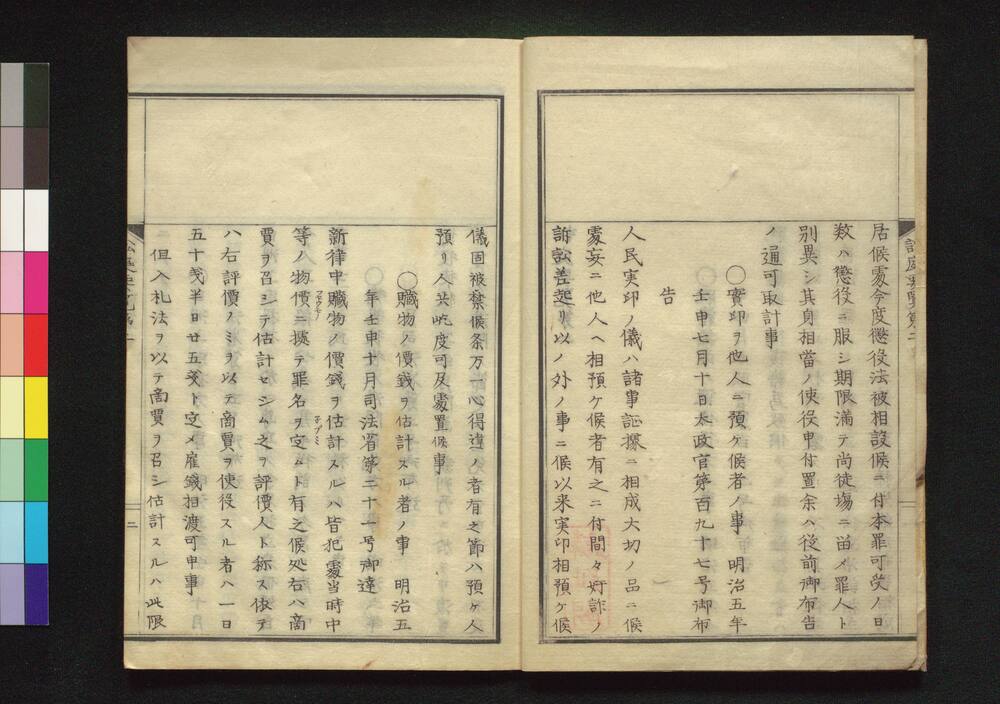 居候処今度懲役法被相設候ニ付本罪可受ノ日
数ハ懲役ニ服シ期限満テ尚徒場ニ畄メ罪人ト
別異シ其身相當ノ使役申付置余ハ従前御布告
ノ通可取計事
○實印ヲ他人ニ預ケ候者ノ事　明治五年
壬申七月十日太政官第百九十七号御布
告
人民実印ノ儀ハ諸事証拠ニ相成大切ノ品ニ候
處妄ニ他人ヘ相預ケ候者有之ニ付間々奸詐ノ
訴訟差起リ以ノ外ノ事ニ候以来実印相預ケ候
儀固被禁候条万一心得違ノ者有之節ハ預ケ人
預リ人共屹度可及處置候事
○贓物ノ價銭ヲ估計スル者ノ事　明治五
年壬申十月司法省第二十一号御達
新律中贓物ノ價銭ヲ估計スルハ皆犯處当時中
等ノ物價ニ拠テ罪名ヲ定ムト有之候処右ハ商
賈ヲ召シテ估計セシム之ヲ評價人ト称ス依テ
ハ右評價ノミヲ以テ商賈ヲ使役スル者ハ一日
五十銭半日廿五銭ト定メ雇銭相渡可申事
但入札法ヲ以テ商賈ヲ召シ估計スルハ此限
二